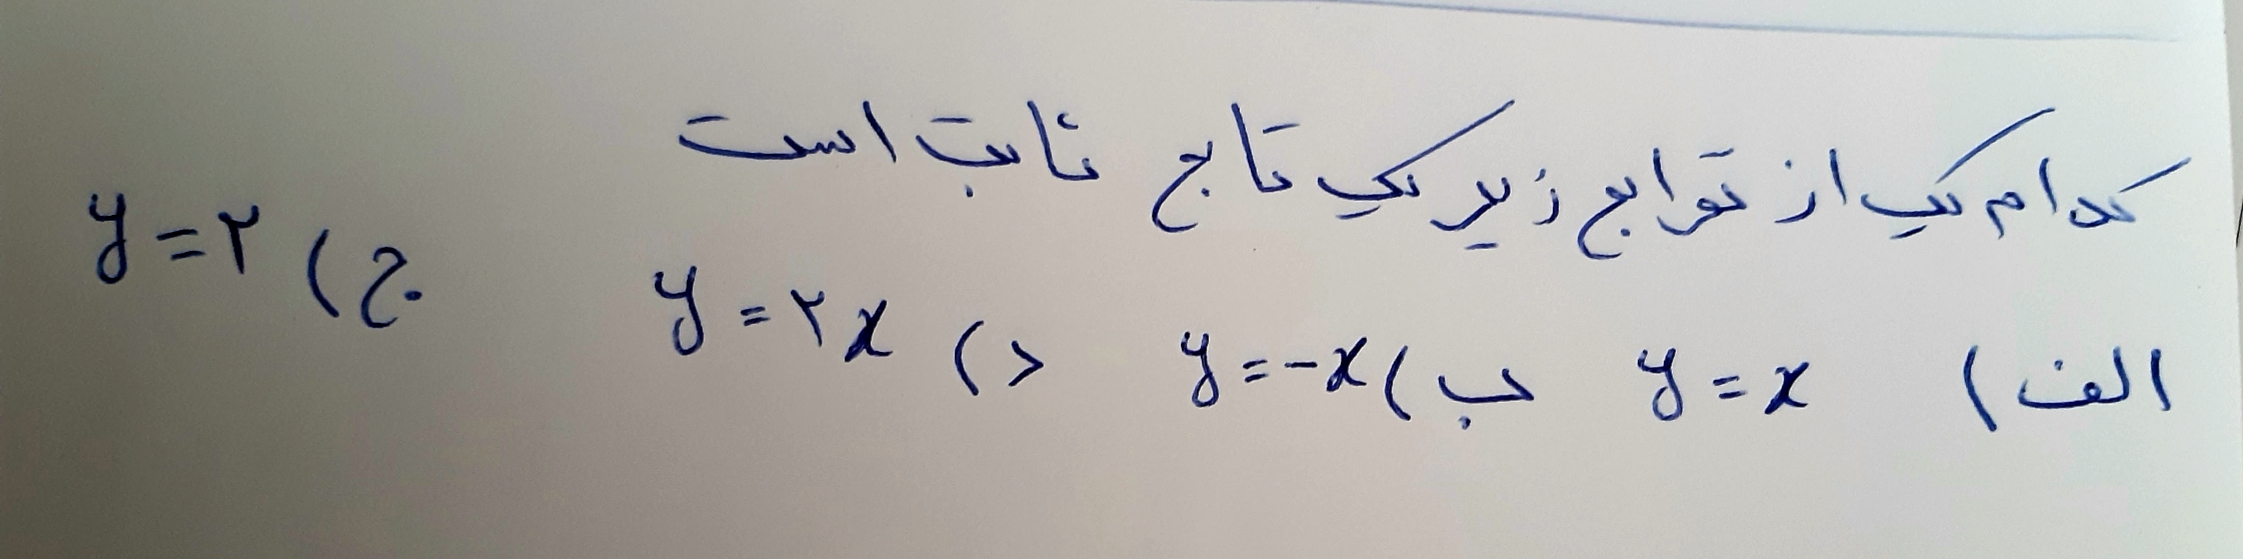 کدام یک از توابع زیر یک تابع ثابت است
الف) y = x ب) y = -x د) y = ۲x ج) y = ۲